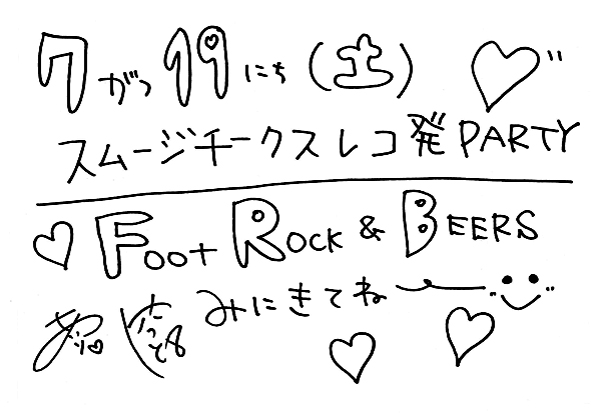 7がつ19にち(土)
スムージチークスレコ発PARTY
FOOT ROCK & BEERS
みにきてね